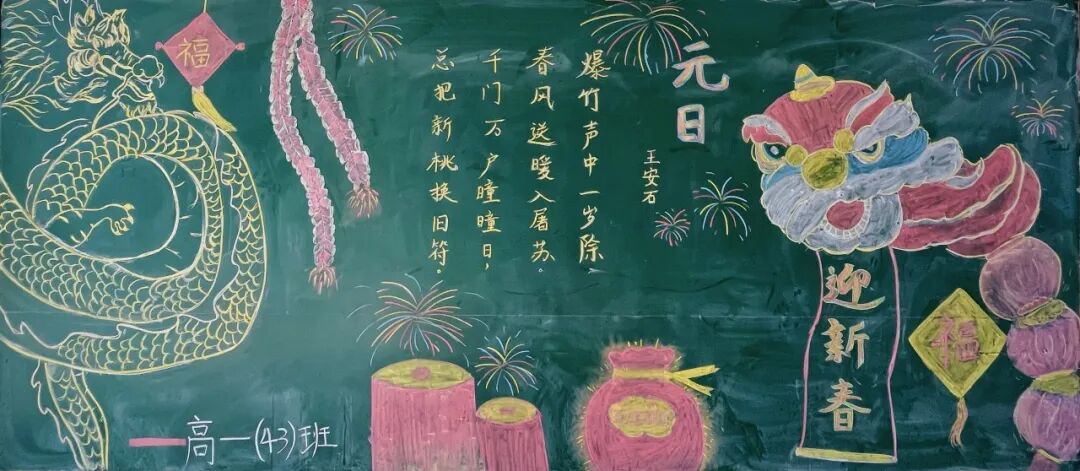 元日
王安石
爆竹声中一岁除，
春风送暖入屠苏。
千门万户曈曈日，
总把新桃换旧符。
迎新春
福
福
高一(43)班